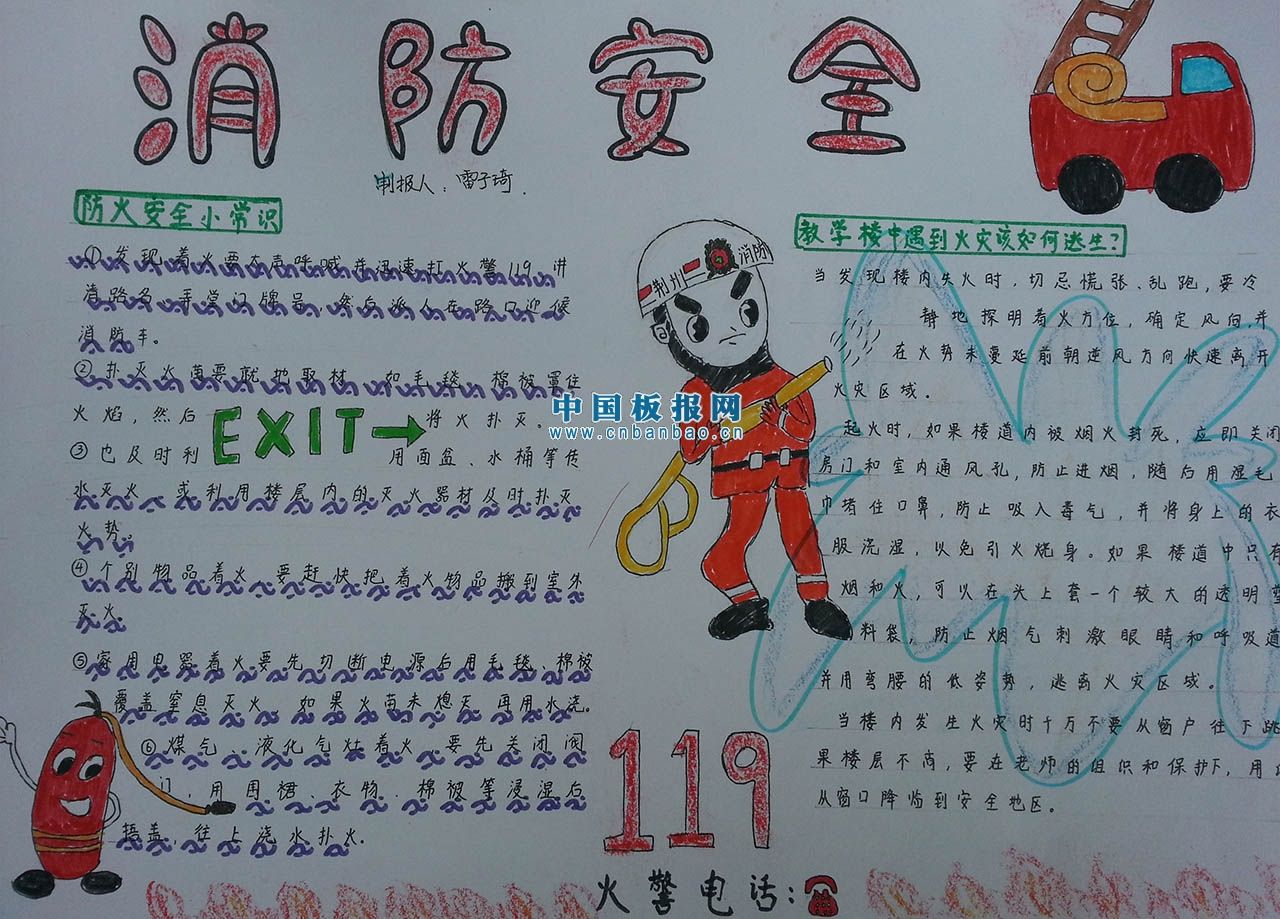 消防安全
制报人：雷子琦.
防火安全小常识
①发现着火要大声呼喊并迅速打火警119 讲
清路名、手掌门牌号,然后派人在路口迎候
消防车。
②扑灭火苗要就地取材 如毛毯、棉被罩住
火焰,然后 将火扑灭。
EXIT
③也及时利 用面盆、水桶等传
水灭火、或利用楼层内的灭火器材及时扑灭
火势。
④个别物品着火要赶快把着火物品搬到室外
灭火。
⑤家用电器着火要先切断电源后用毛毯、棉被
覆盖窒息灭火,如果火苗未熄灭 再用水浇。
⑥煤气、液化气灶着火要先关闭阀
门,用围裙、衣物、棉被等浸湿后
捂盖,往上浇水扑火.
荆州 消防
中国板报网
www.cnbanbao.cn
教学楼中遇到火灾该如何逃生?
当发现楼内失火时,切忌慌张、乱跑,要冷
静地探明着火方位,确定风向并
在火势未蔓延前朝逆风方向快速离开
火灾区域。
起火时,如果楼道内被烟火封死,立即关闭
房门和室内通风孔,防止进烟,随后用湿毛
巾堵住口鼻,防止吸入毒气,并将身上的衣
服浇湿,以免引火烧身。如果楼道中只有
烟和火,可以在头上套一个较大的透明塑
料袋,防止烟气刺激眼睛和呼吸道
并用弯腰的低姿势,逃离火灾区域。
当楼内发生火灾时千万不要从窗户往下跳
果楼层不高,要在老师的组织和保护下,用
从窗口降临到安全地区。
119
火警电话: